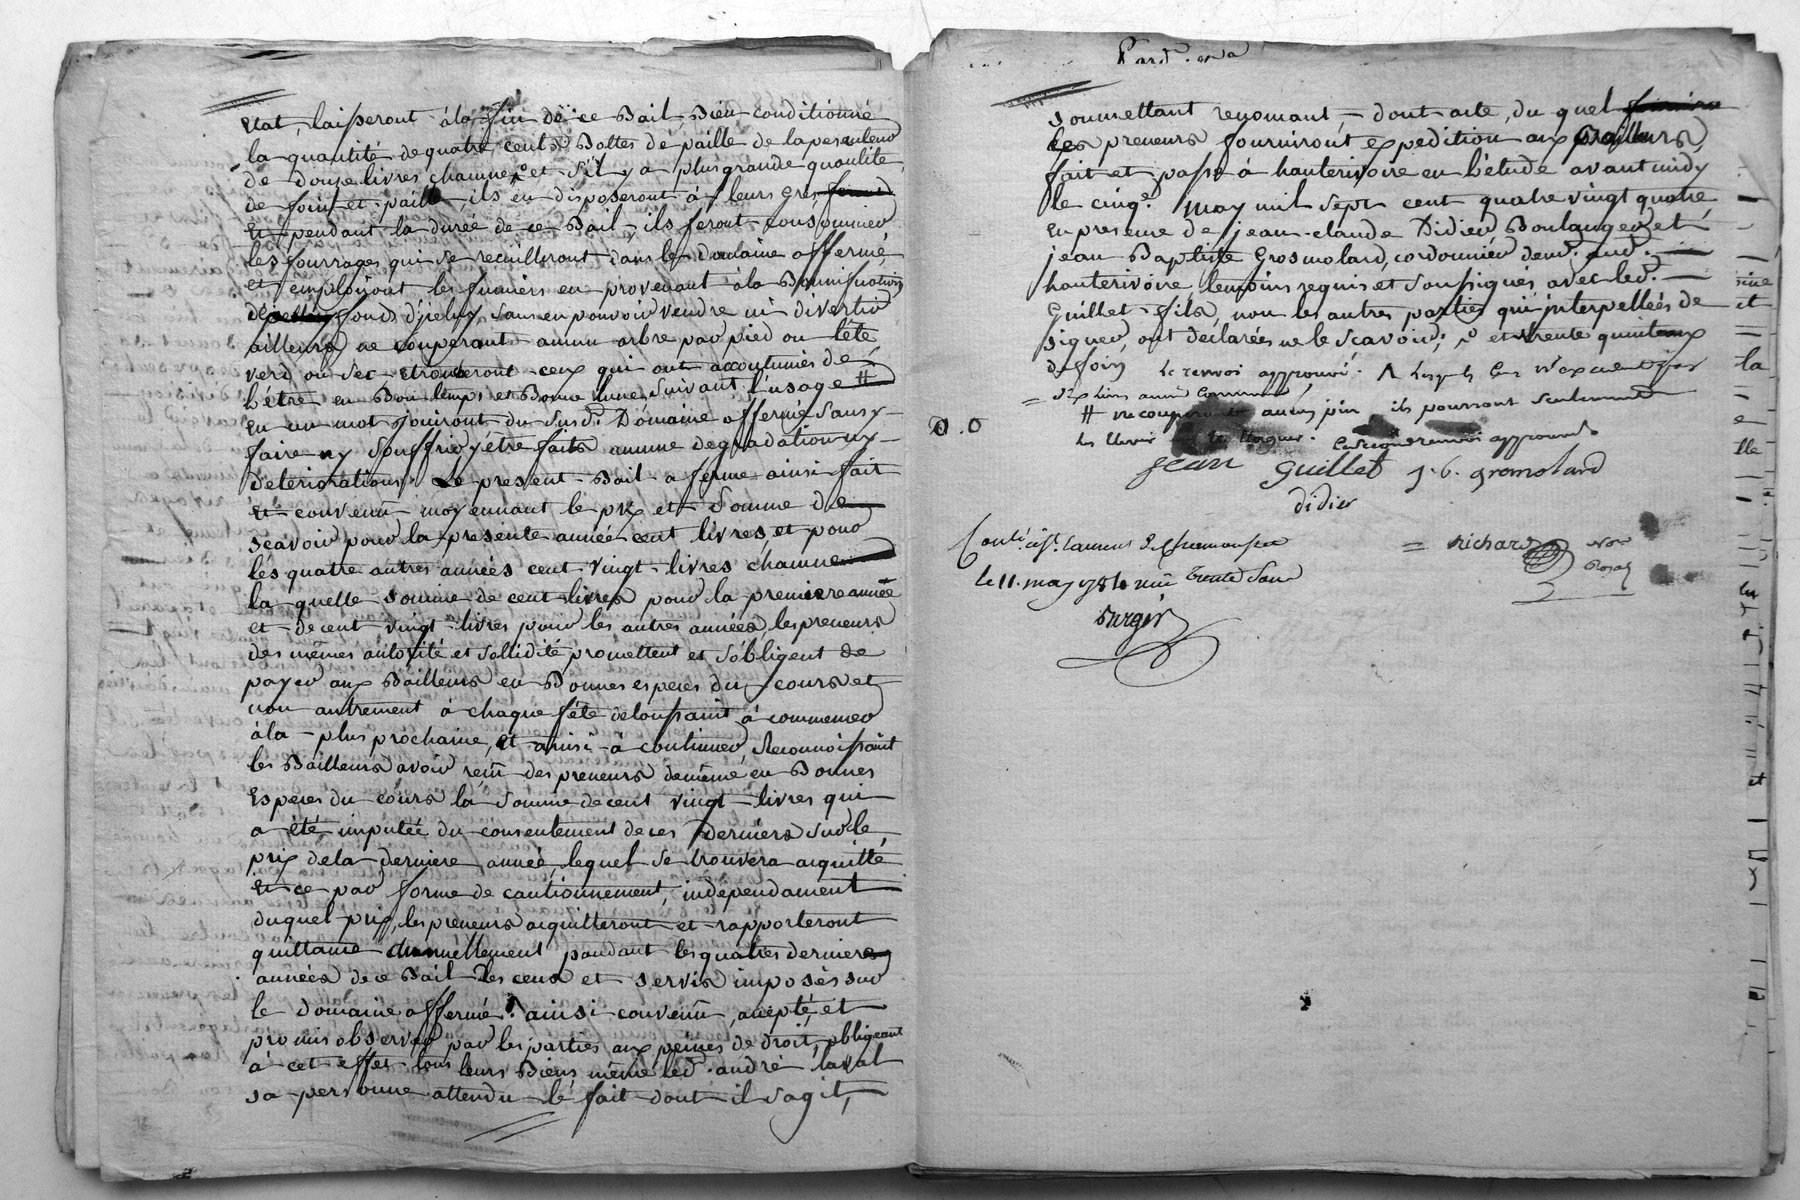 Etat, laisseront à la fin de ce Bail, Bien conditionné
la quantité de quatre cents Bottes de paille de la pesenteur
de douze livres chacune, et s'il y a plus grande quantité
de foin et paille, ils en disposeront à leurs Gres,
Et pendant la durée de ce Bail, ils feront consommer
les fourrages qui se recuilliront dans le domaine affermé
et emploiront les fumiers en provenant à la Bonnification
fonds d'jceluy, sans en pouvoir vendre ni divertir
ailleurs, ne couperont aucun arbre par pied ou tête
verd ou sec, etronceront ceux qui ont accoutumés de
l'être en Bon temps et Bonne lune, suivant l'usage #
En un mot jouiront du susd. Domaine affermé sans y
faire ny souffrir y être faits aucune degradation ny
deteriorations. Le present Bail a ferme ainsi fait
Et convenû moyennant le prix et somme de
scavoir pour la presente année cent livres, et pour
les quatre autres années cent vingt livres chacune
la quelle somme de cent livres pour la premiere année
et de cent vingt livres pour les autres années, les preneurs
des mêmes autorité et sollidité promettent et s'obligent de
payer aux Bailleurs en Bonnes especes du cours et
non autrement à chaque fête de toussaint à commencer
à la plus prochaine, et ainsi à continuer, Reconnoissant
les Bailleurs avoir reçû des preneurs de même en Bonnes
Especes du cours la somme de cent vingt livres qui
a été imputée du consentement de ces Derniers sur le
prix de la derniere année, lequel se trouvera acquitté
Et ce par forme de cautionnement, independament
duquel prix, les preneurs acquitteront et rapporteront
quittance annuellement pandant les quatres dernieres
années de ce Bail les cens et servis imposés sur
le domaine affermé. ainsi convenû, accepté, et
promis observer par les parties aux peines de droit, obligeant
à cet effet tous leurs Biens, même led. andré laval
sa personne attendu le fait dont il s'agit,
soumettant renonçant dont acte, du quel
les preneurs fourniront expedition aux Bailleurs,
fait et passé à hauterivoire en l'étude avant midy
le cinqe. may mil sept cent quatre vingt quatre
en presence de jean claude Didier Boulanger et
jean Baptiste Grosmolard, cordonnier demt. aud.
hauterivoire, temoins requis et soussignés avec led.
Guillet fils, non les autres parties qui interpellées de
signer, ont declarées ne le scavoir; et trente quintaux
de foin le renvoi approuvé.
# ne couperont aucun pin ils pourront seulement
les renvoi approuvé
jean Guillet j. b. gromolard
didier
Richard Nore
Royal
le 11. may 1784 reçû trente sous